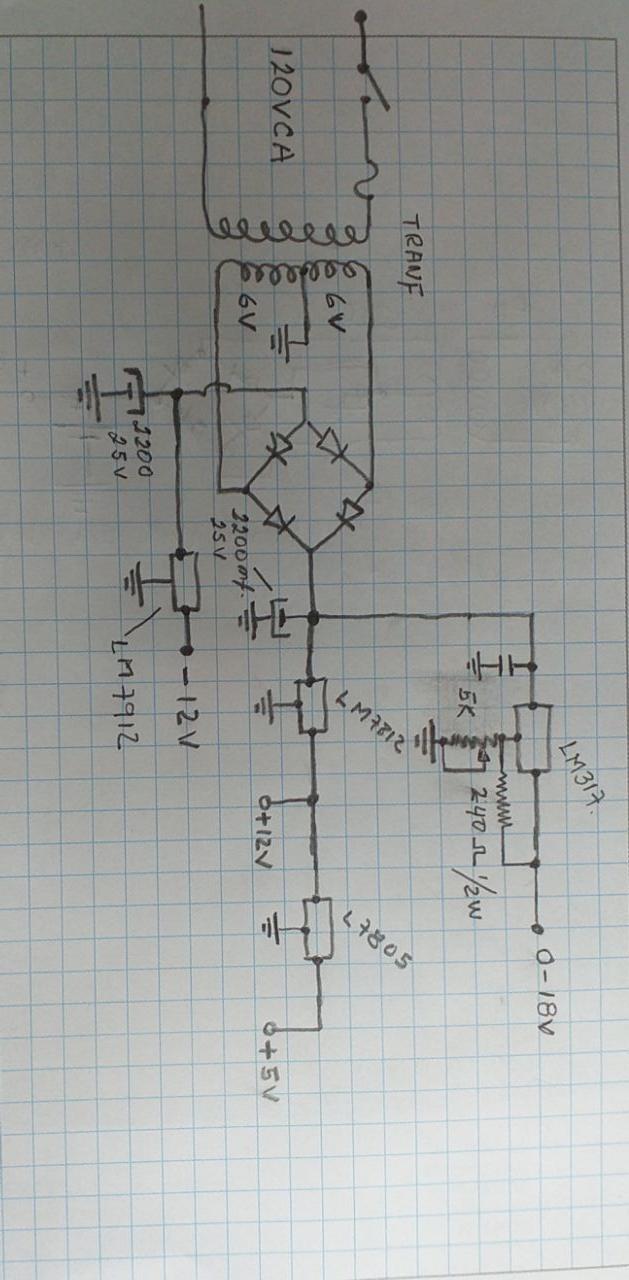 120VCA
TRANF
6V
6V
2200
25V
2200mf.
25V
LM7912
-12V
LM7812
+12V
L7805
+5V
LM317.
5K
240Ω 1/2W
0-18V